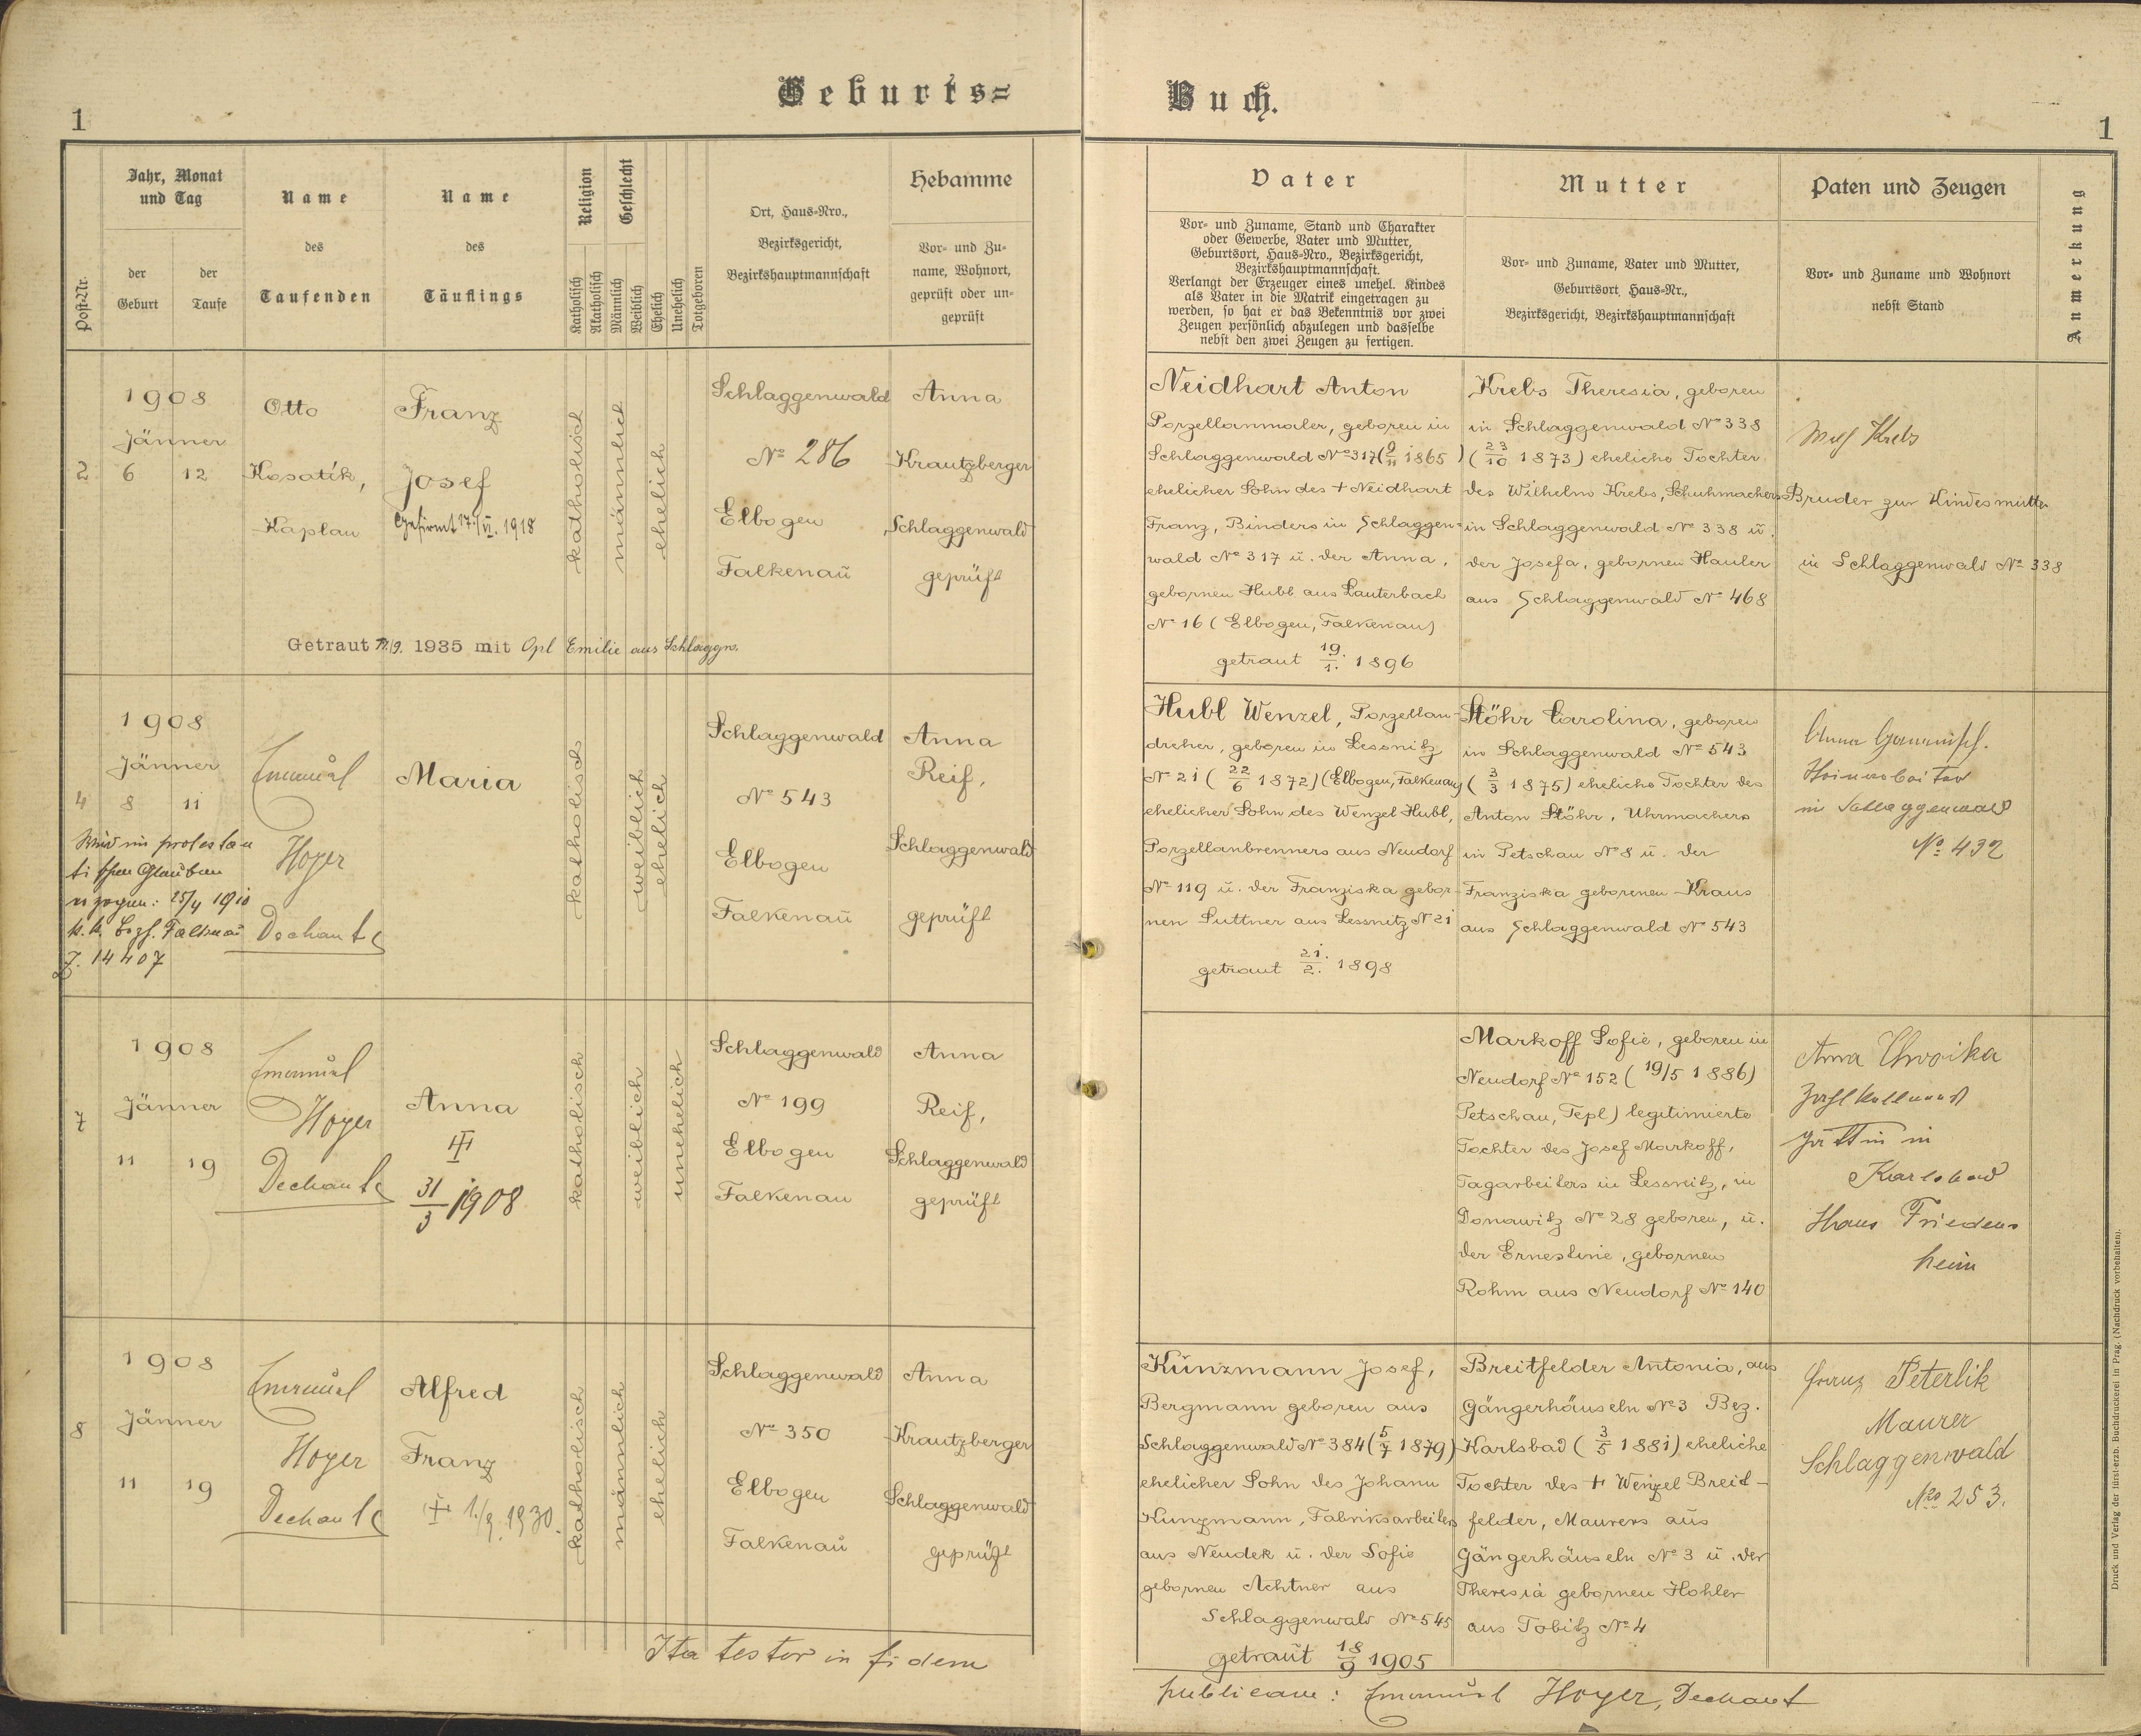 Geburts=
Buch.
1
1
Jahr, Monat
und Tag
Name
Name
Religion
Geschlecht
Hebamme
Post-Nr.
der
Geburt
der
Taufe
des
Taufenden
des
Täuflings
Katholisch
Akatholisch
Männlich
Weiblich
Ehelich
Unehelich
Totgeboren
Ort, Haus=Nro.,
Bezirksgericht,
Bezirkshauptmannschaft
Vor= und Zu=
name, Wohnort,
geprüft oder un=
geprüft
Vater
Mutter
Paten und Zeugen
Anmerkung
Vor= und Zuname, Stand und Charakter
oder Gewerbe, Vater und Mutter,
Geburtsort, Haus=Nro., Bezirksgericht,
Bezirkshauptmannschaft.
Verlangt der Erzeuger eines unehel. Kindes
als Vater in die Matrik eingetragen zu
werden, so hat er das Bekenntnis vor zwei
Zeugen persönlich abzulegen und dasselbe
nebst den zwei Zeugen zu fertigen.
Vor= und Zuname, Vater und Mutter,
Geburtsort, Haus=Nr.,
Bezirksgericht, Bezirkshauptmannschaft
Vor= und Zuname und Wohnort
nebst Stand
1908
Jänner
2 6 12
Otto
Kosatík,
Kaplan
Franz
Josef
Gefirmt 17./VI. 1918
katholisch
männlich
ehelich
Schlaggenwald
No 286
Elbogen
Falkenau
Anna
Krautzberger
Schlaggenwald
geprüft
Getraut 1935 mit Opl Emilie aus Schlaggw.
Neidhart Anton
Porzellanmaler, geboren in
Schlaggenwald No 317 (9/11 1865)
ehelicher Sohn des + Neidhart
Franz, Binders in Schlaggen=
wald No 317 u. der Anna,
gebornen Hubl aus Lauterbach
No 16 (Elbogen, Falkenau)
getraut 19./1. 1896
Krebs Theresia, geboren
in Schlaggenwald No 338
(23/10 1873) eheliche Tochter
des Wilhelm Krebs, Schuhmachers
in Schlaggenwald No 338 u.
der Josefa, gebornen Hauler
aus Schlaggenwald No 468
Krebs
Bruder zur Kindesmutter
in Schlaggenwald No 338
1908
Jänner
4 8 11
Wird im protestan
tischen Glauben
erzogen: 25/4 1910
k.k. Bezh. Falkenau
Z. 14407
Emanuel
Hoyer
Dechant
Maria
katholisch
weiblich
ehelich
Schlaggenwald
No 543
Elbogen
Falkenau
Anna
Reif,
Schlaggenwald
geprüft
Hubl Wenzel, Porzellan-
dreher, geboren in Lessnitz
No 21 (22/6 1872) (Elbogen, Falkenau)
ehelicher Sohn des Wenzel Hubl,
Porzellanbrenners aus Neudorf
No 119 u. der Franziska gebor-
nen Puttner aus Lessnitz No 21
getraut 21./2. 1898
Stöhr Carolina, geboren
in Schlaggenwald No 543
(3/3 1875) eheliche Tochter des
Anton Stöhr, Uhrmachers
in Petschau No 8 u. der
Franziska geborenen Kraus
aus Schlaggenwald No 543
Anna
in Schlaggenwald
No 432
1908
Jänner
7
11 19
Emanuel
Hoyer
Dechant
Anna
31/3 1908
katholisch
weiblich
unehelich
Schlaggenwald
No 199
Elbogen
Falkenau
Anna
Reif,
Schlaggenwald
geprüft
Markoff Sofie, geboren in
Neudorf No 152 (19/5 1886)
Petschau, Tepl) legitimierte
Tochter des Josef Markoff,
Tagarbeiters in Lessnitz, in
Donawitz No 28 geboren, u.
der Ernestine, gebornen
Rohm aus Neudorf No 140
Anna Chwoika
Zahlkellners
gattin in
Karlsbad
Haus Friedens
heim
1908
Jänner
8
11 19
Emanuel
Hoyer
Dechant
Alfred
Franz
1./9. 1930.
katholisch
männlich
ehelich
Schlaggenwald
No 350
Elbogen
Falkenau
Anna
Krautzberger
Schlaggenwald
geprüft
Kunzmann Josef,
Bergmann geboren aus
Schlaggenwald No 384 (5/7 1879)
ehelicher Sohn des Johann
Kunzmann, Fabriksarbeiters
aus Neudek u. der Sofie
gebornen Achtner aus
Schlaggenwald No 545
getraut 18/9 1905
Breitfelder Antonia, aus
Gängerhäuseln No 3 Bez.
Karlsbad (3/5 1881) eheliche
Tochter des + Wenzel Breid-
felder, Maurers aus
Gängerhäuseln No 3 u. der
Theresia gebornen Hohler
aus Tobitz No 4
Franz Peterlik
Maurer
Schlaggenwald
Nro 253.
Ita testor in fidem
publicam: Emanuel Hoyer, Dechant
Druck und Verlag der fürst-erzb. Buchdruckerei in Prag. (Nachdruck vorbehalten).